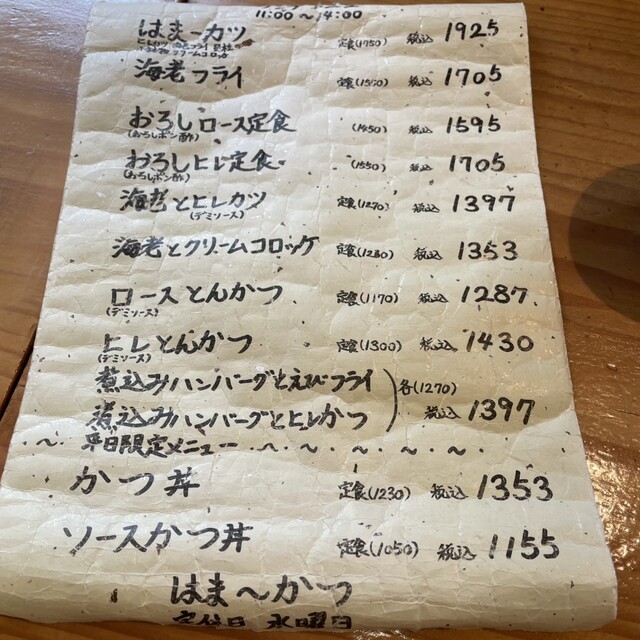 11:00〜14:00
はまーカツ 定食(1750) 税込 1925
海老フライ 定食(1550) 税込 1705
おろしロース定食 (1450) 税込 1595
(おろしポン酢)
おろしヒレ定食 (1550) 税込 1705
(おろしポン酢)
海老とヒレカツ 定食(1270) 税込 1397
(デミソース)
海老とクリームコロッケ 定食(1230) 税込 1353
ロースとんかつ 定食(1170) 税込 1287
(デミソース)
ヒレとんかつ 定食(1300) 税込 1430
(デミソース)
煮込みハンバーグとえびフライ 各(1270)
煮込みハンバーグとヒレかつ 税込 1397
平日限定メニュー
かつ丼 定食(1230) 税込 1353
ソースかつ丼 定食(1050) 税込 1155
はま〜かつ
定休日 水曜日